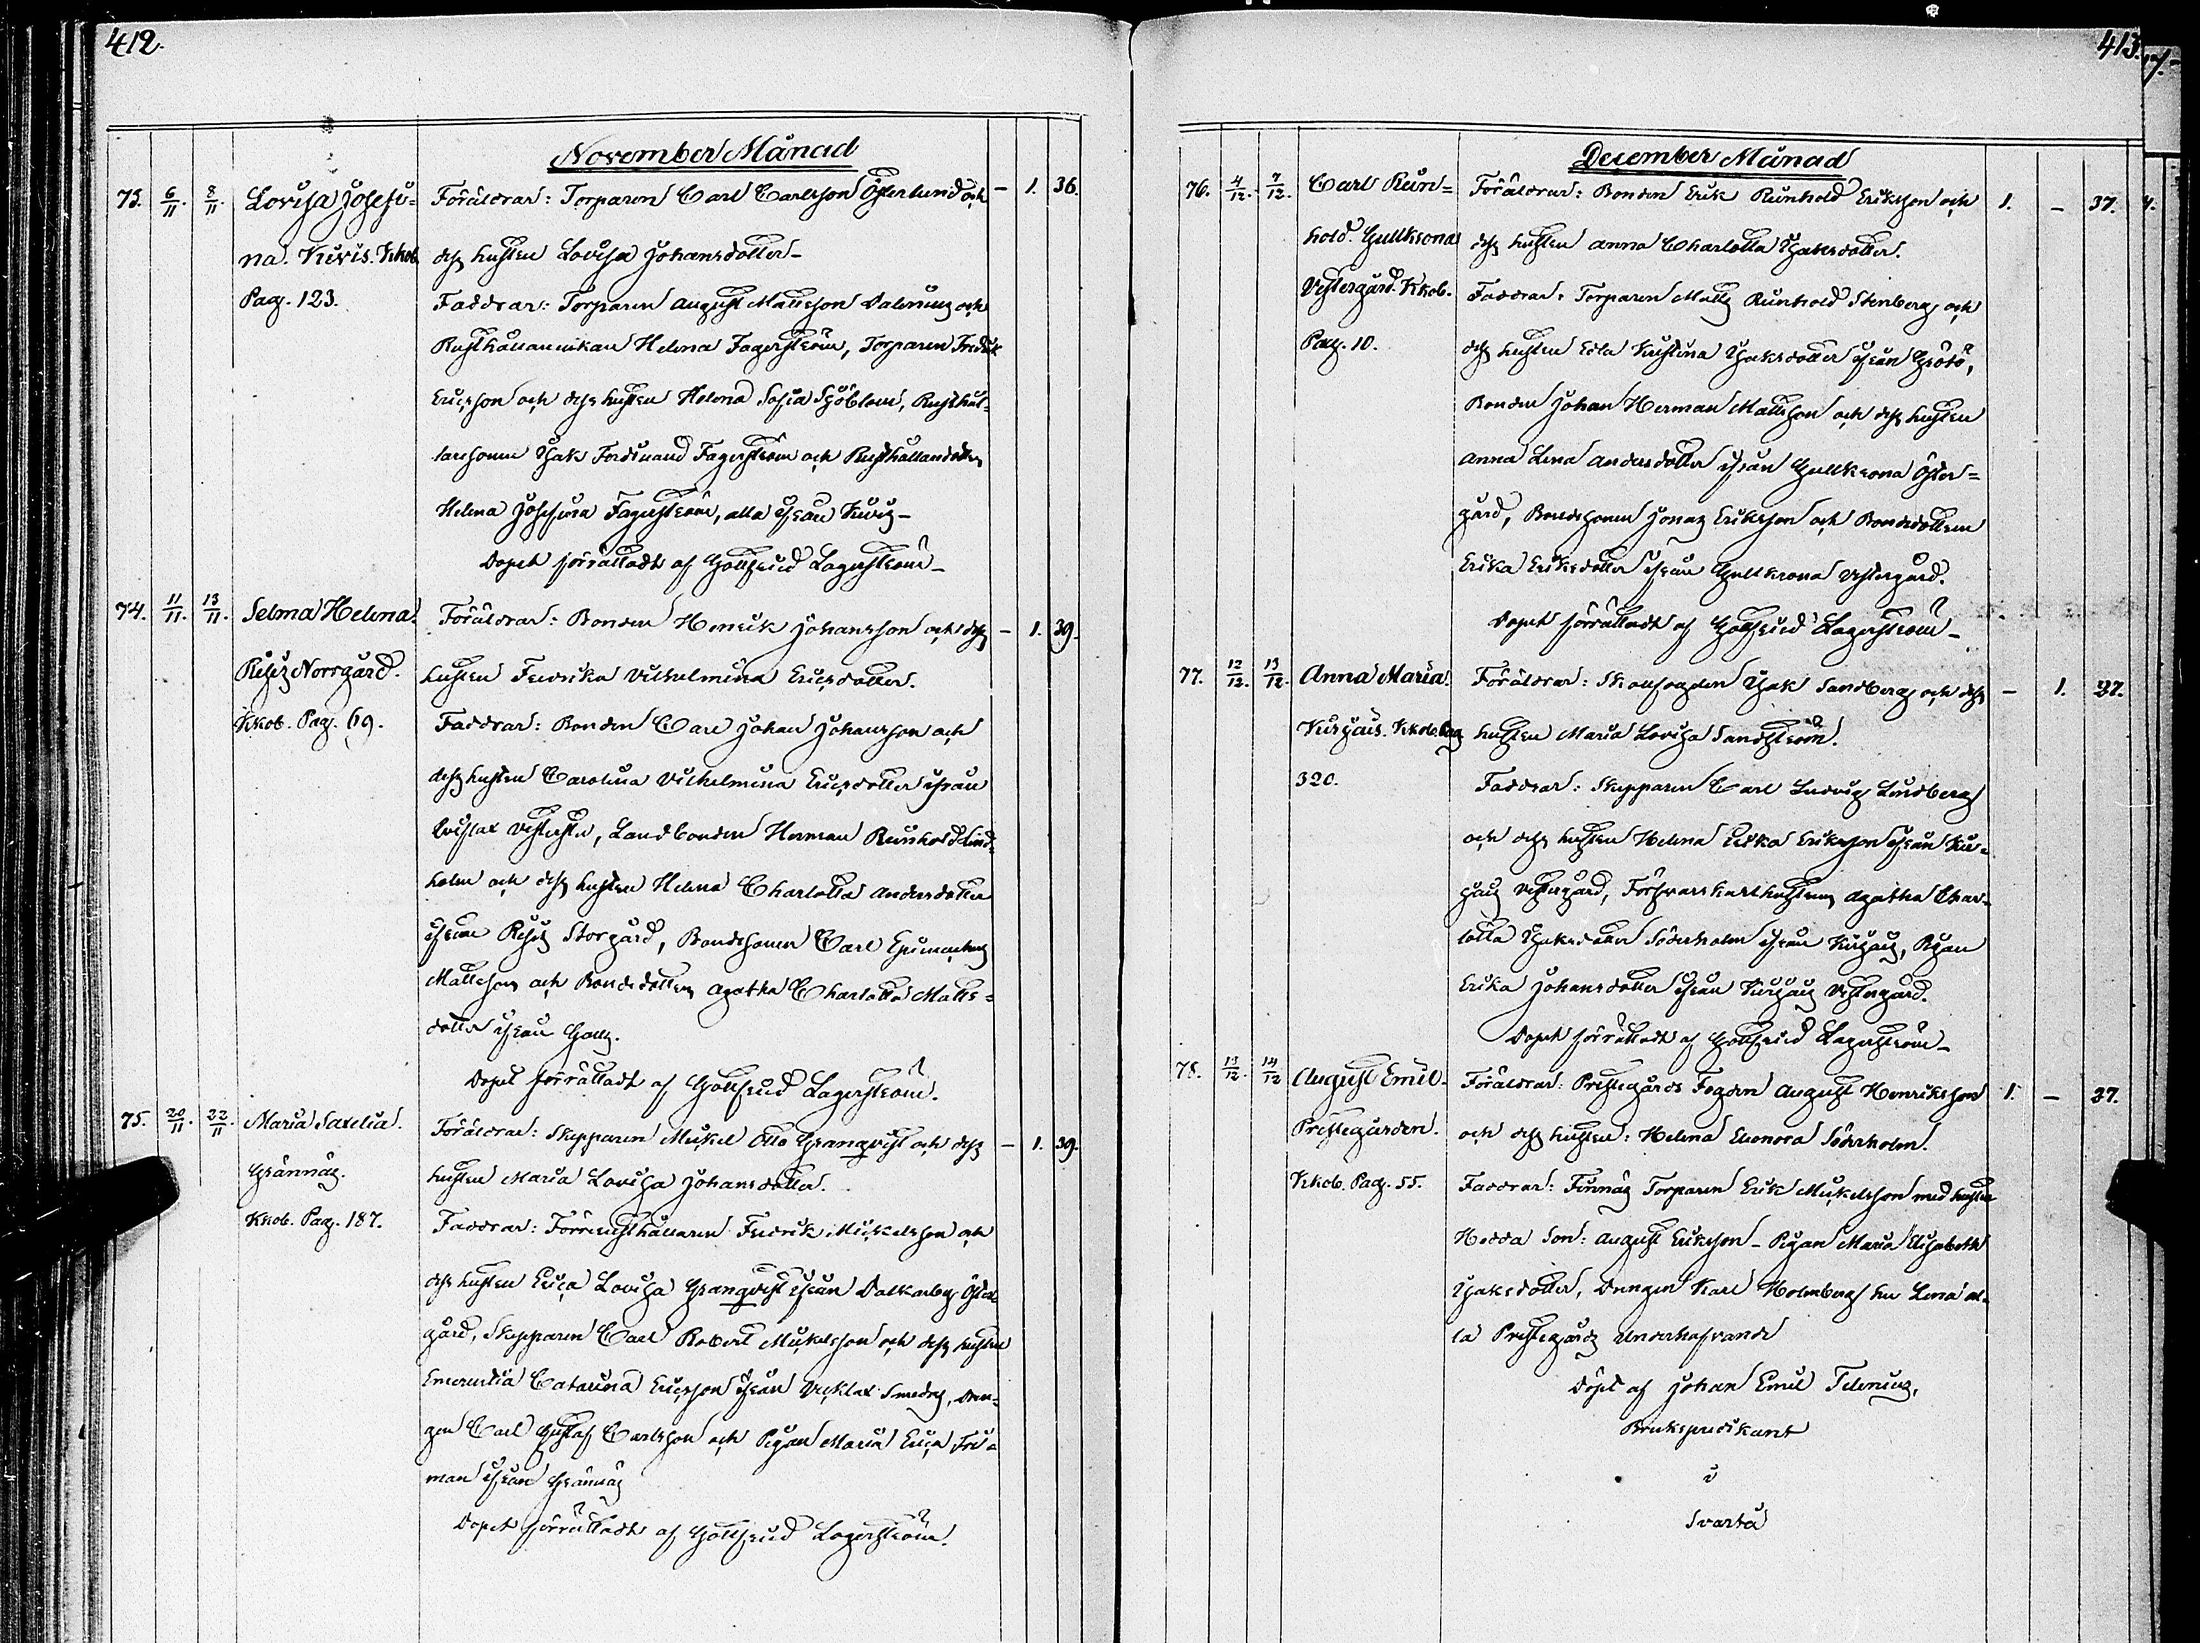 412.
November Månad
73. 6/11. 8/11. Lovisa Josefi= Föräldrar: Torparen Carl Carlsson Österlund och — 1. 36.
na. Kivis. Kkob. dess hustru Lovisa Johansdotter—
Pag. 123. Faddrar: Torparen August Mattsson Dalening och
Rusthållaränkan Helena Fagerström, Torparen Fredrik
Ericsson och dess hustru Helena Sofia Sjöblom, Rusthål-
laresonen Isak Ferdinand Fagerström och Rusthållaredottern
Helena Josefina Fagerström, alla ifrån Kivis—
Dopet förrättadt af Gottfrid Lagerström—
74. 11/11. 13/11. Selma Helena. Föräldrar: Bonden Henrik Johansson och dess — 1. 39.
Norrgård. hustru Fredrika Vilhelmina Ericsdotter.
Kkob. Pag. 69. Faddrar: Bonden Carl Johan Johansson och
dess hustru Carolina Vilhelmina Ericsdotter ifrån
Landbonden Herman Reinhold Lind-
holm och dess hustru Helena Charlotta Andersdotter
ifrån Storgård, Bondesonen Carl
Mattsson och Bondedottern Agatha Charlotta Matts=
dotter ifrån
Dopet förrättadt af Gottfrid Lagerström.
75. 20/11. 22/11. Maria Sarelia. Föräldrar: Skepparen Mickel Otto Granqvist och dess — 1. 39.
Grännäs. hustru Maria Lovisa Johansdotter.
Kkob. Pag. 187. Faddrar: Förrerusthållaren Fredrik Mickelsson och
dess hustru Erica Lovisa Granqvist ifrån Dalkarby Öster
gård, Skepparen Carl Robert Mickelsson och dess hustru
Emerentia Catarina Ericsson ifrån Smeds, Dren-
gen Carl Gustaf Carlsson och Pigan Maria Erica
man ifrån Grännäs
Dopet förrättadt af Gottfrid Lagerström.
413.
December Månad
76. 4/12. 7/12. Carl Rein= Föräldrar: Bonden Erik Reinhold Eriksson och 1. — 37. 4.
hold. Gullkrona dess hustru Anna Charlotta Isaksdotter.
Vestergård. Kkob. Faddrar: Torparen Matts Reinhold Stenberg och
Pag. 10. dess hustru Edla Kristina Isaksdotter ifrån Grötö,
Bonden Johan Herman Mattsson och dess hustru
Anna Lena Andersdotter ifrån Gullkrona Öster=
gård, Bondesonen Jonas Eriksson och Bondedottren
Erika Eriksdotter ifrån Gullkrona Vestergård.
Dopet förrättadt af Gottfrid Lagerström—
77. 12/12. 13/12. Anna Maria. Föräldrar: Skattfogden Isak Sandberg och dess — 1. 37.
Kirjais. Kkob. Pag. hustru Maria Lovisa Sandström.
320. Faddrar: Skepparen Carl Ludvig Lindberg
och dess hustru Helena Erika Eriksson ifrån Kir-
jais Vestergård, Försvarskarlhustrun Agatha Char-
lotta Isaksdotter Söderholm ifrån Kirjais, Pigan
Erika Johansdotter ifrån Kirjais Vestergård.
Dopet förrättadt af Gottfrid Lagerström—
78. 13/12. 14/12 August Emil. Föräldrar: Prestegårds Fogden August Henriksson 1. — 37.
Prestegården. och dess hustru: Helena Eleonora Söderholm.
Kkob. Pag. 55. Faddrar: Finnäs Torparen Erik Mickelsson med hustru
Hedda Son: August Eriksson— Pigan Maria Elisabeth
Isaksdotter, Drengen Karl Holmberg hu Lena al-
la Prestegårds Underhafvande
Döpt af Johan Emil Telenius,
Brukspredikant
i
Svartå